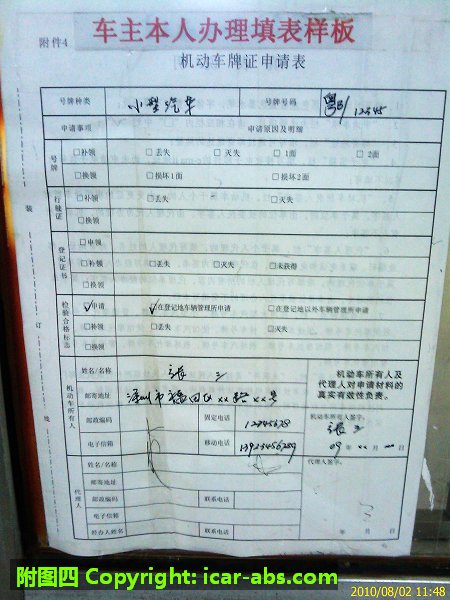 附件4
车主本人办理填表样板
机动车牌证申请表
号牌种类 小型汽车 号牌号码 粤B/12345
申请事项 申请原因及明细
号牌 □补领 □丢失 □灭失 □1面 □2面
□换领 □损坏1面 □损坏2面
行驶证 □补领 □丢失 □灭失
□换领
登记证书 □申领
□补领 □丢失 □灭失 □未获得
□换领
检验合格标志 ☑申请 ☑在登记地车辆管理所申请 □在登记地以外车辆管理所申请
□补领 □丢失 □灭失
□换领
机动车所有人 姓名/名称 張三
邮寄地址 深圳市福田区××路××号
邮政编码 固定电话 12345678
电子信箱 移动电话 13923456789
机动车所有人及
代理人对申请材料的
真实有效性负责。
机动车所有人签字:
張三
09年××月××日
代理人 姓名/名称
邮寄地址
邮政编码 联系电话
电子信箱
经办人姓名 联系电话
代理人签字:
年 月 日
装
订
线
附图四 Copyright: icar-abs.com
2010/08/02 11:48